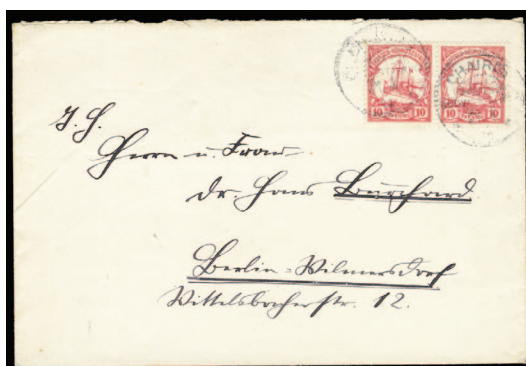 10 10 10 10
J. H.
Herrn u. Frau
Dr. Hans Burchard
Berlin-Wilmersdorf
Wittelsbacherstr. 12.